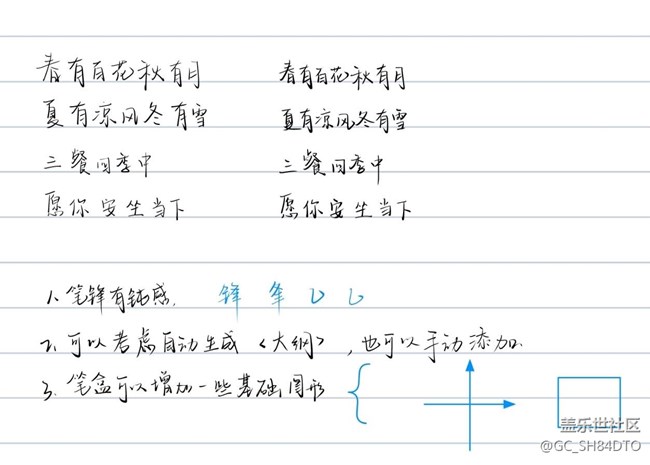 春有百花秋有月 春有百花秋有月
夏有凉风冬有雪 夏有凉风冬有雪
三餐四季中 三餐四季中
愿你安生当下 愿你安生当下
1. 笔锋有钝感. 锋 夆
2. 可以考虑自动生成《大纲》,也可以手动添加.
3. 笔盒可以增加一些基础图形
盖乐世社区
@GC_SH84DTO